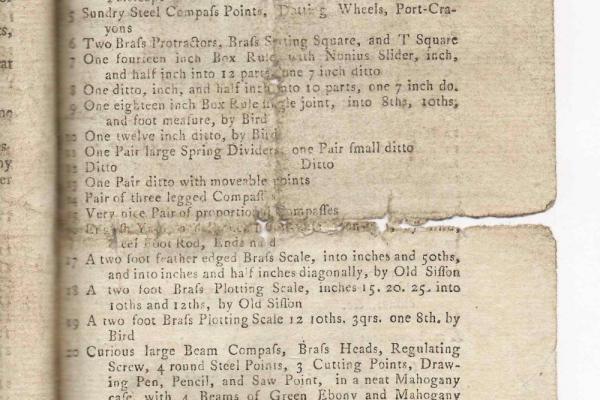 5 Sundry Steel Compaſs Points, Dotting Wheels, Port-Cra-
yons
6 Two Braſs Protractors, Braſs Setting Square, and T Square
7 One fourteen inch Box Rule, with Nonius Slider, inch,
and half inch into 12 parts, one 7 inch ditto
8 One ditto, inch, and half inch into 10 parts, one 7 inch do.
9 One eighteen inch Box Rule ſingle joint, into 8ths, 10ths,
and foot meaſure, by Bird
10 One twelve inch ditto, by Bird
11 One Pair large Spring Dividers, one Pair ſmall ditto
12 Ditto Ditto
13 One Pair ditto with moveable points
14 Pair of three legged Compaſſ
15 Very nice Pair of proportional Compaſſes
Foot Rod, Ends
17 A two foot feather edged Braſs Scale, into inches and 50ths,
and into inches and half inches diagonally, by Old Siſſon
18 A two foot Braſs Plotting Scale, inches 15. 20. 25. into
10ths and 12ths, by Old Siſſon
19 A two foot Braſs Plotting Scale 12 10ths. 3qrs. one 8th. by
Bird
20 Curious large Beam Compaſs, Braſs Heads, Regulating
Screw, 4 round Steel Points, 3 Cutting Points, Draw-
ing Pen, Pencil, and Saw Point, in a neat Mahogany
caſe, with 4 Beams of Green Ebony and Mahogany